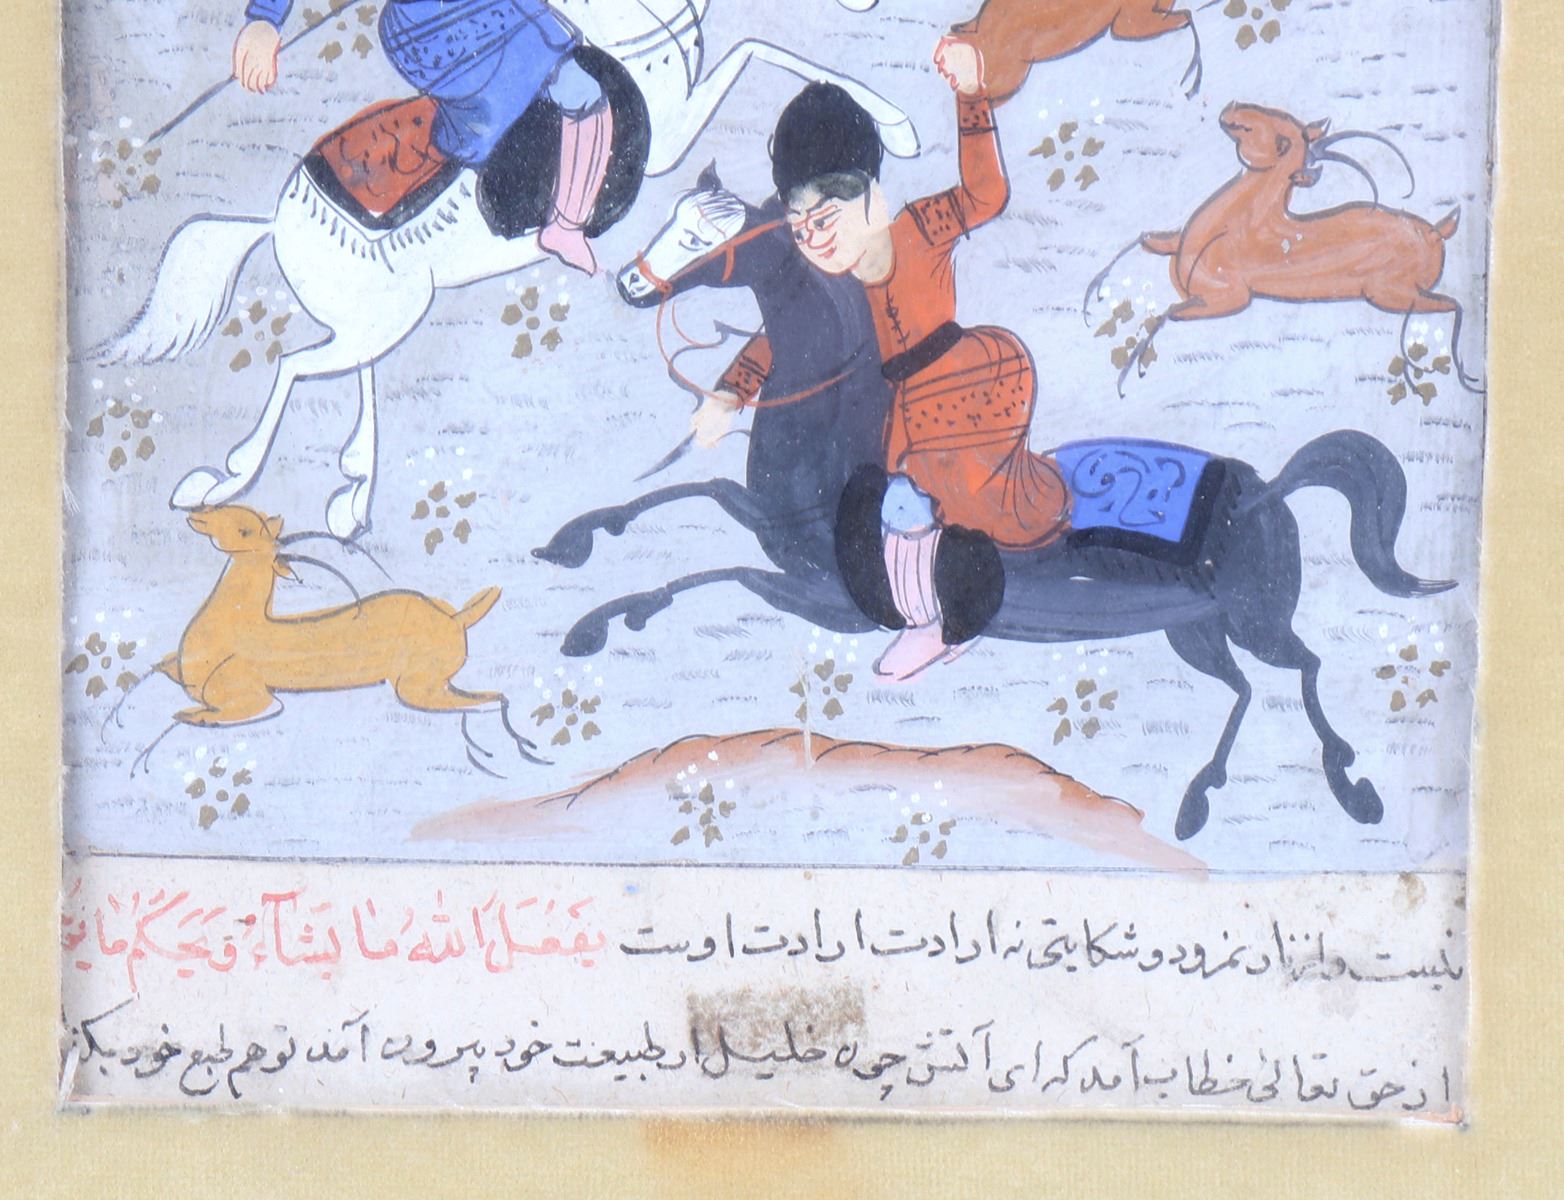 نیست و از نار نمرود و شکایتی نه ارادت ارادت اوست یَفعَلُ اللهُ مَا یَشَآءُ وَ یَحکُمُ مَا
از حق تعالی خطاب آمد که ای آتش چون خلیل از طبیعت خود بیرون آمد تو هم طبع خود